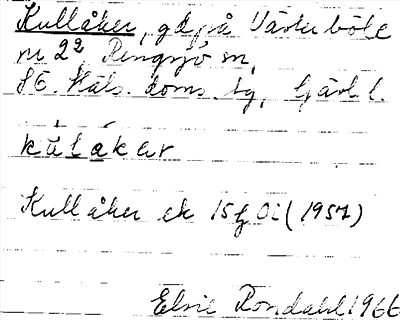 Kullåker, gd på Västerböle
nr 2² Rengsjö sn,
SÖ. Häls. doms. tg, Gävl. l.
kulåker
Kullåker ek 15 fj Öi (1957)
Elsie Rondahl 1966